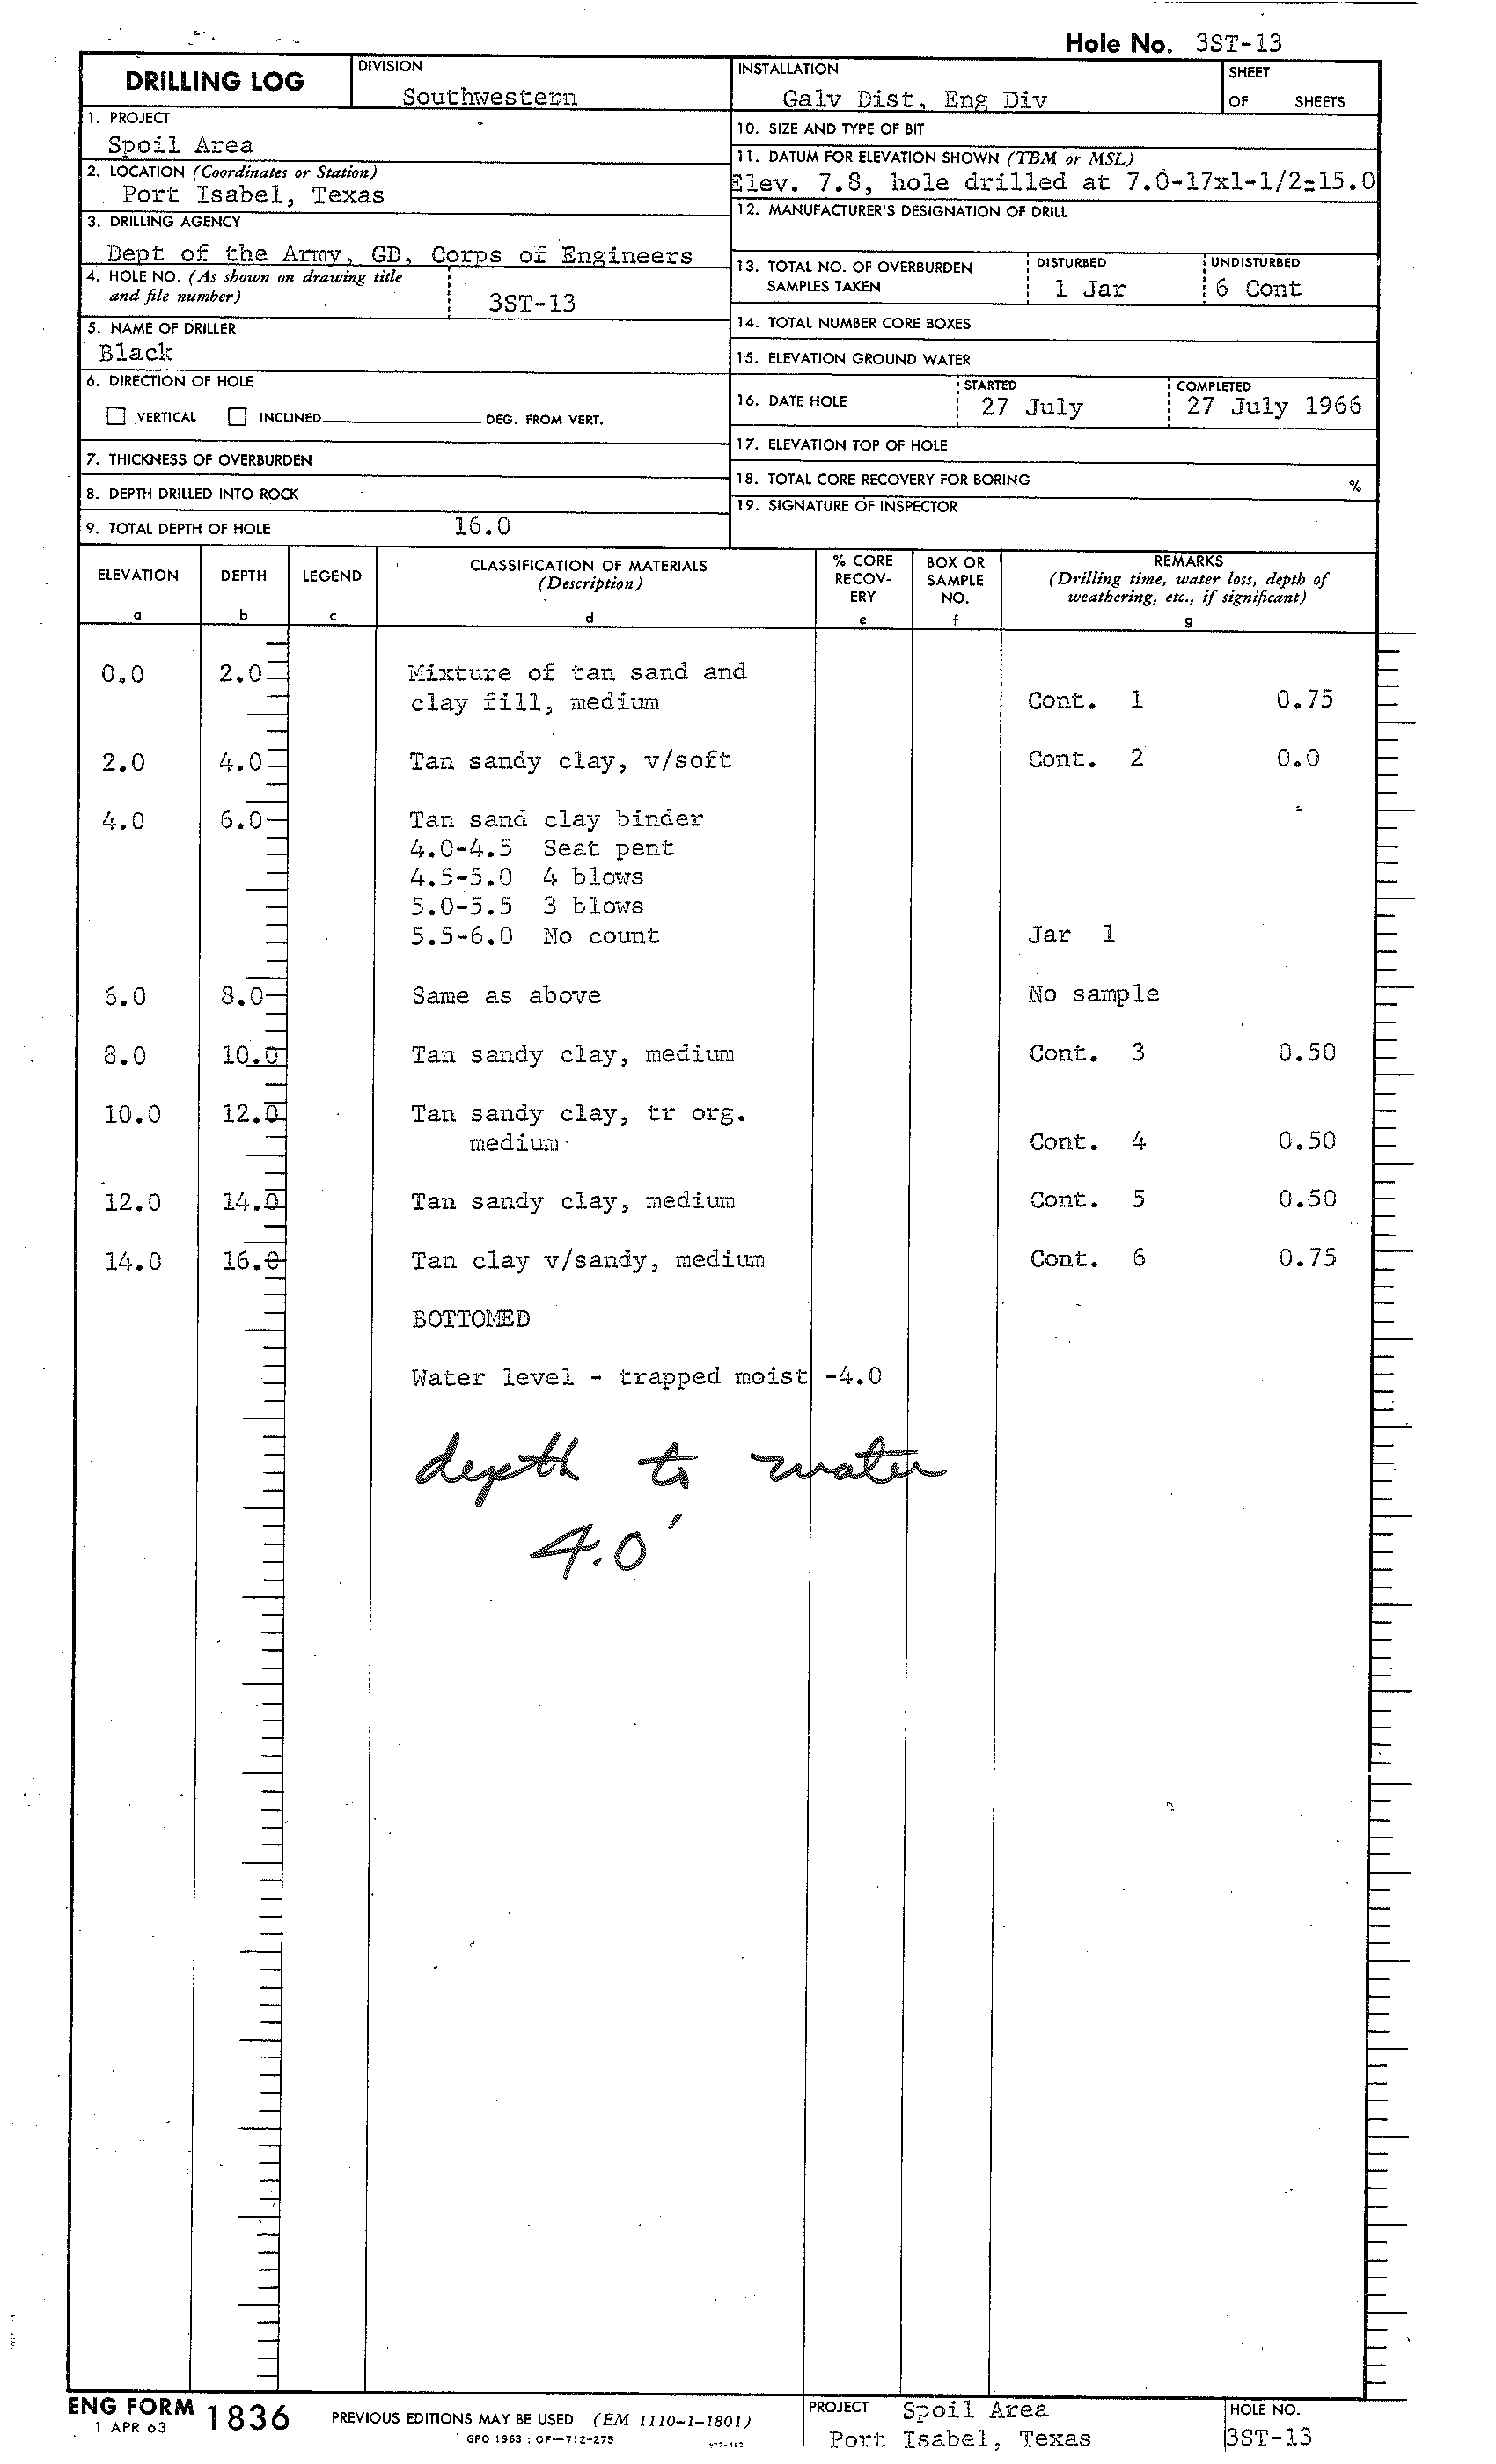 Hole No. 3ST-13
DRILLING LOG
DIVISION
Southwestern
INSTALLATION
Galv Dist, Eng Div
SHEET
OF SHEETS
1. PROJECT
Spoil Area
2. LOCATION (Coordinates or Station)
Port Isabel, Texas
3. DRILLING AGENCY
Dept of the Army, GD, Corps of Engineers
4. HOLE NO. (As shown on drawing title
and file number)
3ST-13
5. NAME OF DRILLER
Black
6. DIRECTION OF HOLE
VERTICAL INCLINED DEG. FROM VERT.
7. THICKNESS OF OVERBURDEN
8. DEPTH DRILLED INTO ROCK
9. TOTAL DEPTH OF HOLE 16.0
10. SIZE AND TYPE OF BIT
11. DATUM FOR ELEVATION SHOWN (TBM or MSL)
Elev. 7.8, hole drilled at 7.0-17x1-1/2=15.0
12. MANUFACTURER'S DESIGNATION OF DRILL
13. TOTAL NO. OF OVERBURDEN
SAMPLES TAKEN
DISTURBED
1 Jar
UNDISTURBED
6 Cont
14. TOTAL NUMBER CORE BOXES
15. ELEVATION GROUND WATER
16. DATE HOLE
STARTED
27 July
COMPLETED
27 July 1966
17. ELEVATION TOP OF HOLE
18. TOTAL CORE RECOVERY FOR BORING %
19. SIGNATURE OF INSPECTOR
ELEVATION
a
DEPTH
b
LEGEND
c
CLASSIFICATION OF MATERIALS
(Description)
d
% CORE
RECOV-
ERY
e
BOX OR
SAMPLE
NO.
f
REMARKS
(Drilling time, water loss, depth of
weathering, etc., if significant)
g
0.0 2.0 Mixture of tan sand and
clay fill, medium Cont. 1 0.75
2.0 4.0 Tan sandy clay, v/soft Cont. 2 0.0
4.0 6.0 Tan sand clay binder
4.0-4.5 Seat pent
4.5-5.0 4 blows
5.0-5.5 3 blows
5.5-6.0 No count Jar 1
6.0 8.0 Same as above No sample
8.0 10.0 Tan sandy clay, medium Cont. 3 0.50
10.0 12.0 Tan sandy clay, tr org.
medium Cont. 4 0.50
12.0 14.0 Tan sandy clay, medium Cont. 5 0.50
14.0 16.0 Tan clay v/sandy, medium Cont. 6 0.75
BOTTOMED
Water level - trapped moist -4.0
depth to water
4.0'
ENG FORM 1836
1 APR 63
PREVIOUS EDITIONS MAY BE USED (EM 1110-1-1801)
GPO 1963 : OF—712-275
PROJECT Spoil Area
Port Isabel, Texas
HOLE NO.
3ST-13